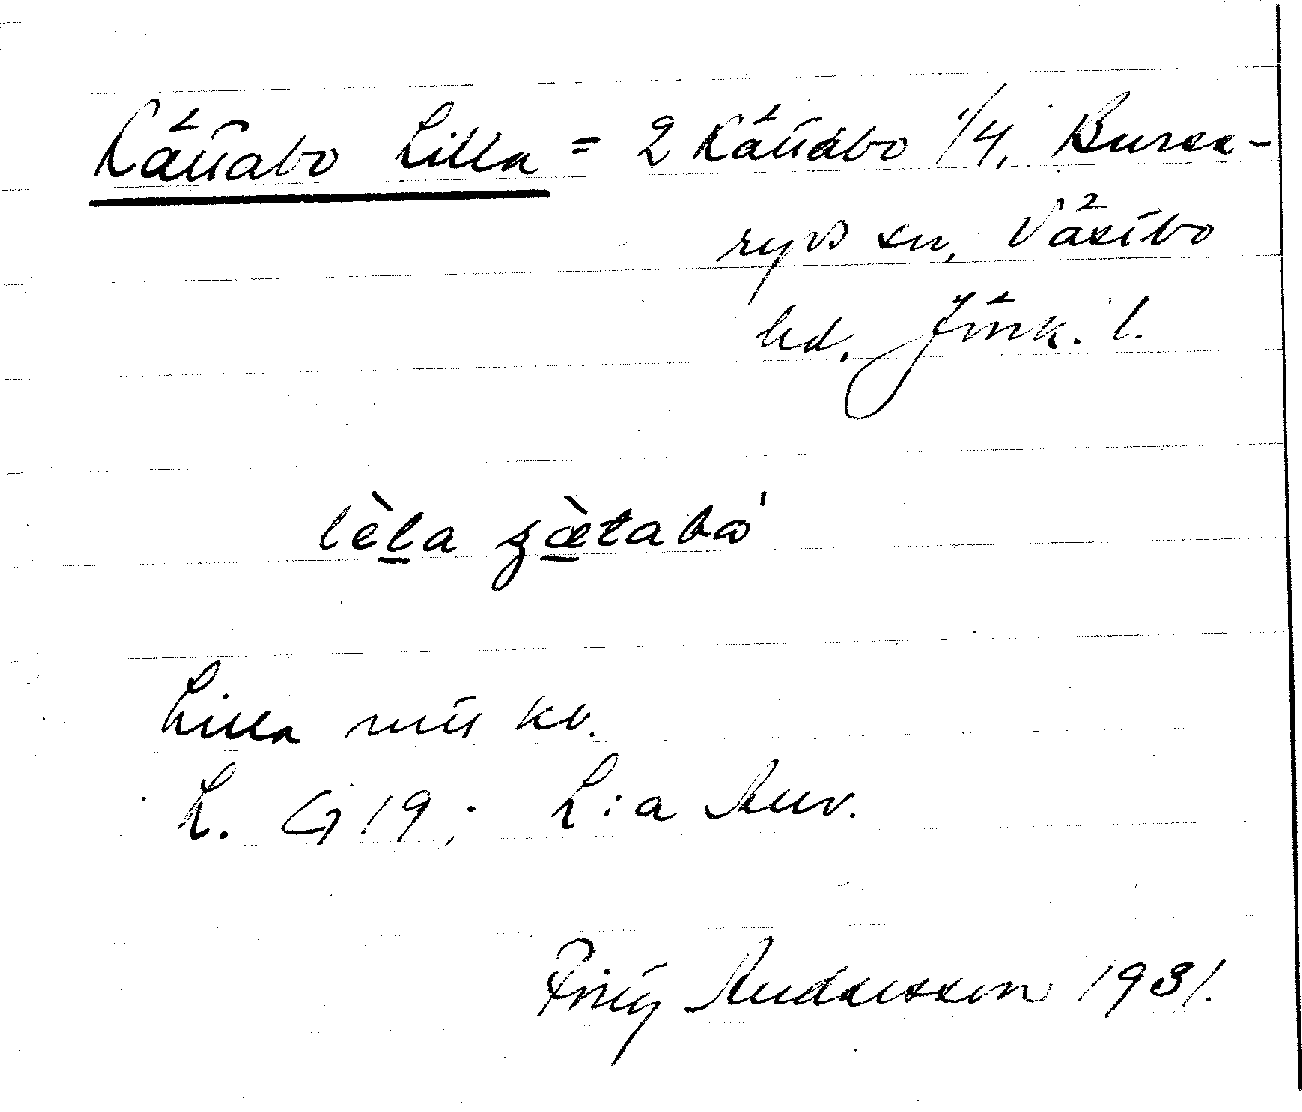 Kättabo Lilla = 2 Kättabo 1/4, Burse-
ryds sn, Västbo
hd. Jönk. l.
lèla ʒæ̀tabω
Lilla mtl kv.
L. G 19; L:a Anv.
Fritz Andersson 1931.